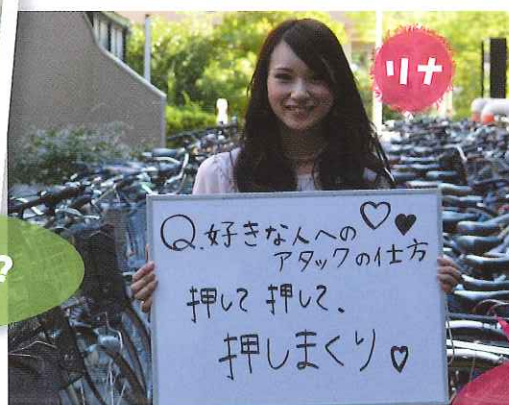 リナ
Q.好きな人への♡♥
アタックの仕方
押して押して、
押しまくり♡
?